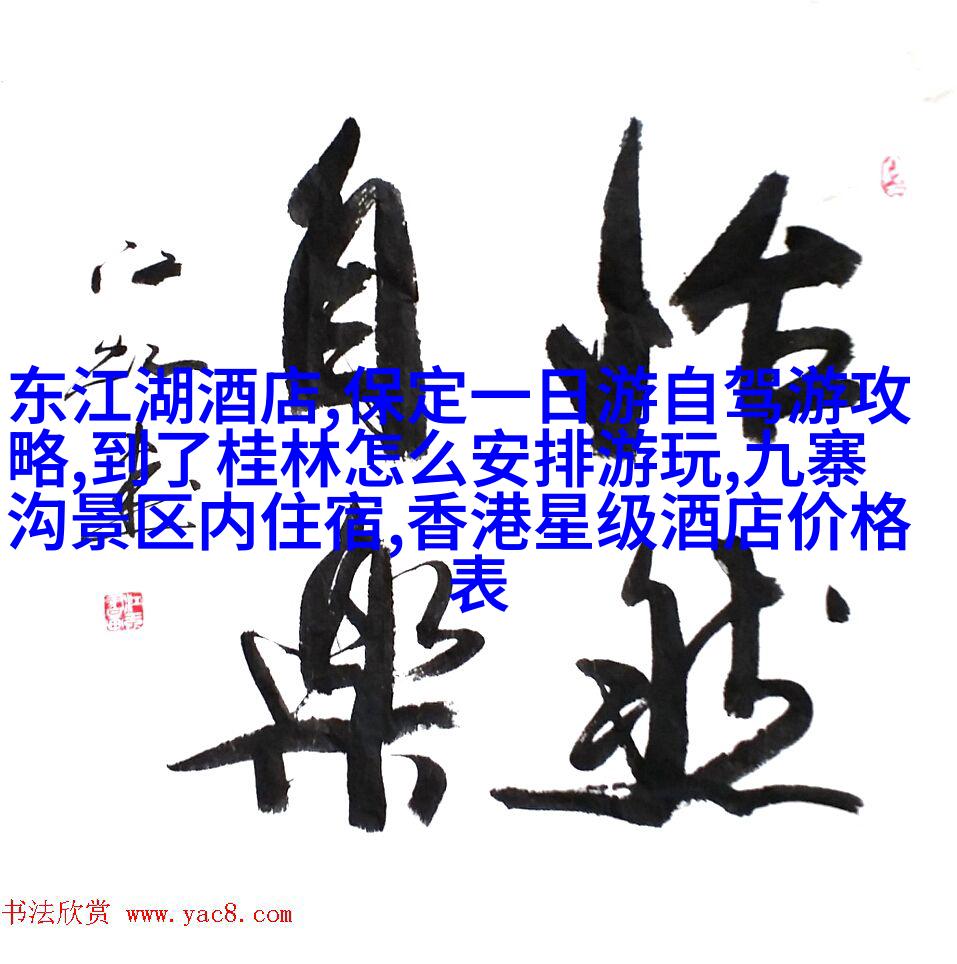 怡然
自樂
东江湖酒店,保定一日游自驾游攻
略,到了桂林怎么安排游玩,九寨
沟景区内住宿,香港星级酒店价格
表
书法欣赏 www.yac8.com